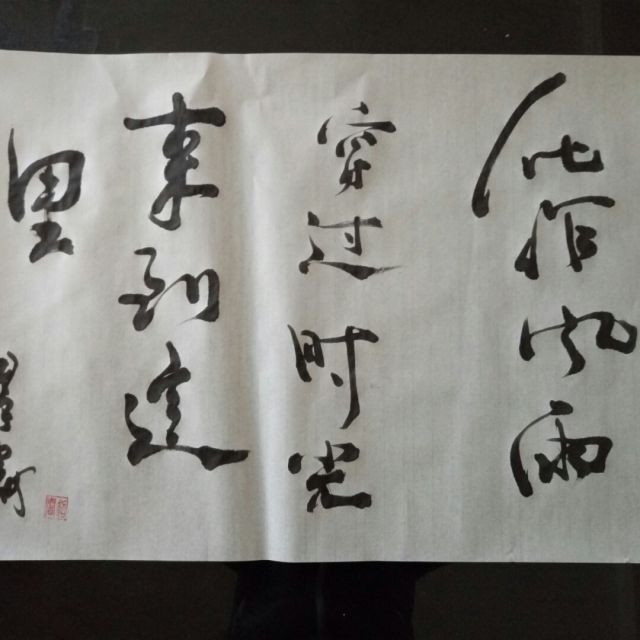 风雨
穿过时光
来到这
里